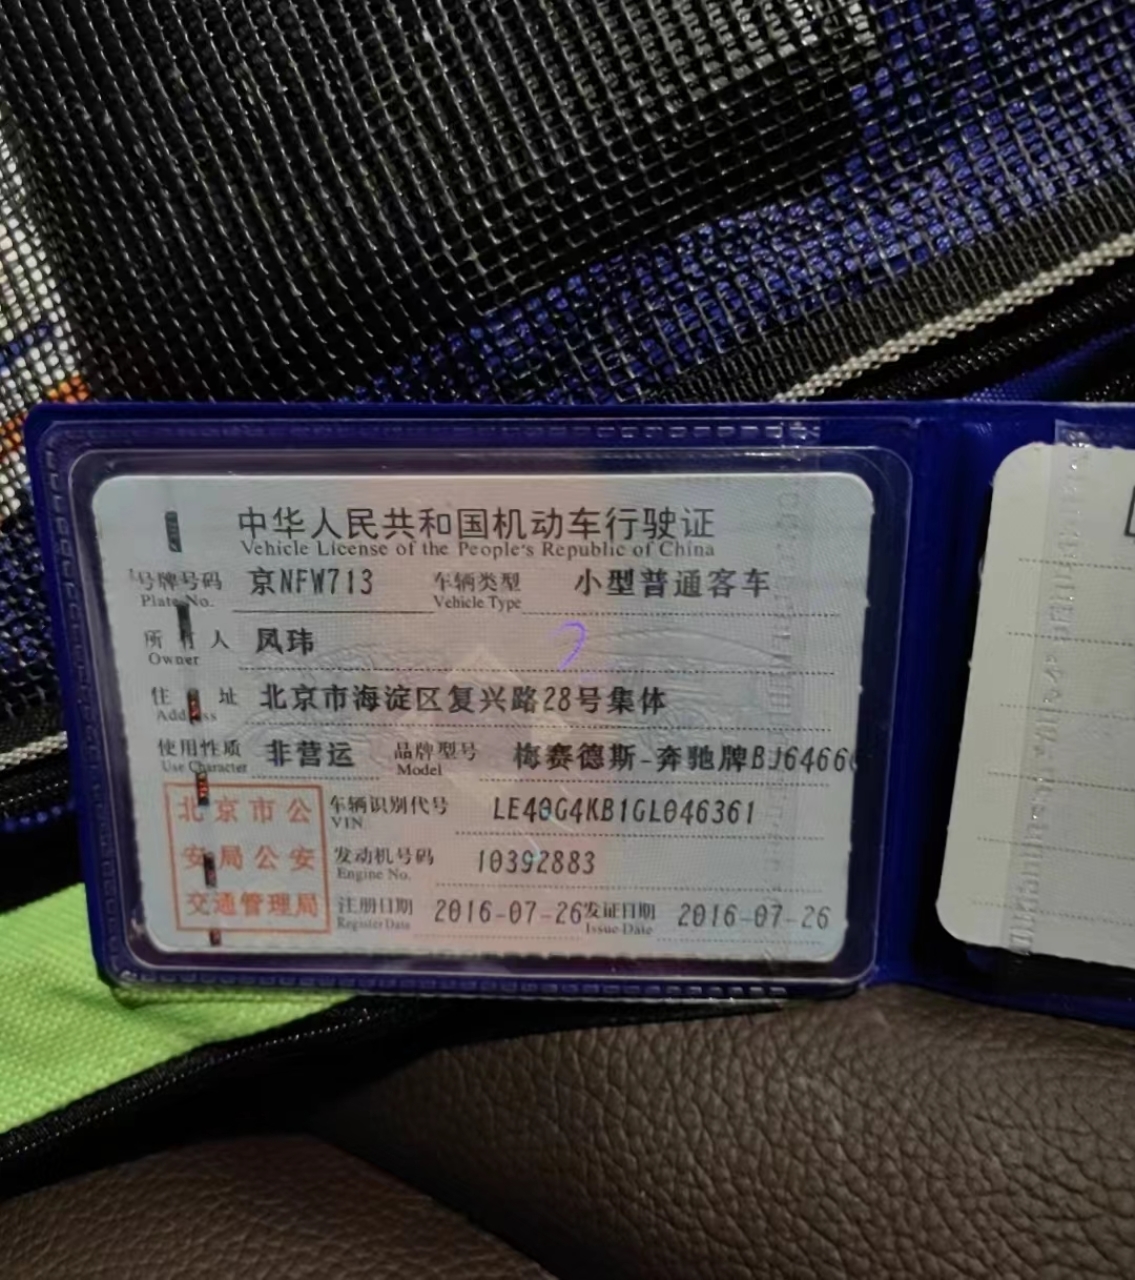 中华人民共和国机动车行驶证
Vehicle License of the People's Republic of China
号牌号码 京NFW713 车辆类型 小型普通客车
Plate No. Vehicle Type
所有人 凤玮
Owner
住址 北京市海淀区复兴路28号集体
Address
使用性质 非营运 品牌型号 梅赛德斯-奔驰牌BJ6466
Use Character Model
北京市公 车辆识别代号 LE40G4KB1GL046361
VIN
安局公安 发动机号码 10392883
Engine No.
交通管理局 注册日期 2016-07-26 发证日期 2016-07-26
Register Date Issue Date